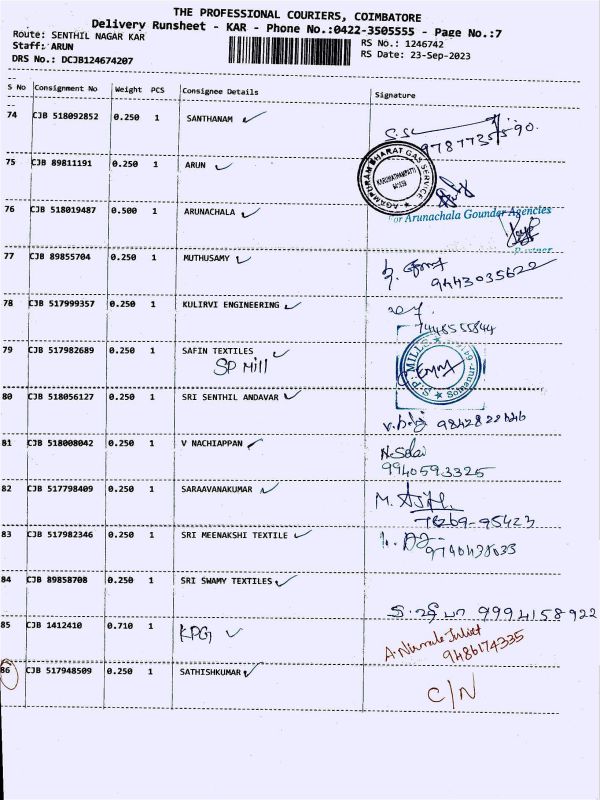 THE PROFESSIONAL COURIERS, COIMBATORE
Delivery Runsheet - KAR - Phone No.:0422-3505555 - Page No.:7
Route: SENTHIL NAGAR KAR
RS No.: 1246742
Staff: ARUN
RS Date: 23-Sep-2023
DRS No.: DCJB124674207
S No Consignment No Weight PCS Consignee Details Signature
74 CJB 518092852 0.250 1 SANTHANAM
9787735590
75 CJB 89811191 0.250 1 ARUN
BHARAT GAS SERVICE
76 CJB 518019487 0.500 1 ARUNACHALA
For Arunachala Gounder Agencies
Partner
77 CJB 89855704 0.250 1 MUTHUSAMY
9443035622
78 CJB 517999357 0.250 1 KULIRVI ENGINEERING
7448555844
79 CJB 517982689 0.250 1 SAFIN TEXTILES
SP Mill
S.P. MILLS
80 CJB 518056127 0.250 1 SRI SENTHIL ANDAVAR
9842822446
81 CJB 518008042 0.250 1 V NACHIAPPAN
N. Selvi
9940593325
82 CJB 517798409 0.250 1 SARAAVANAKUMAR
78269-95423
83 CJB 517982346 0.250 1 SRI MEENAKSHI TEXTILE
84 CJB 89858708 0.250 1 SRI SWAMY TEXTILES
9994158922
85 CJB 1412410 0.710 1 KPG
A. Nirmale Juliet
9486174335
86 CJB 517948509 0.250 1 SATHISHKUMAR
C/N